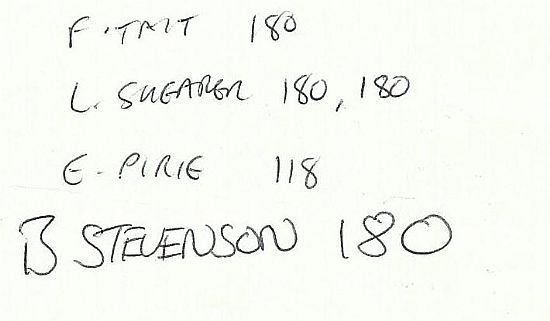 F. TAIT 180
L. SHEARER 180, 180
E. PIRIE 118
B STEVENSON 180